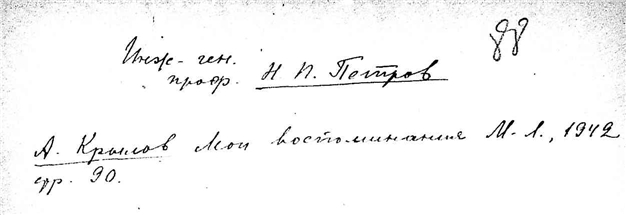 88
Инж-ген.
проф. Н. П. Петров
А. Крылов Мои воспоминания М.-Л., 1942
стр. 90.